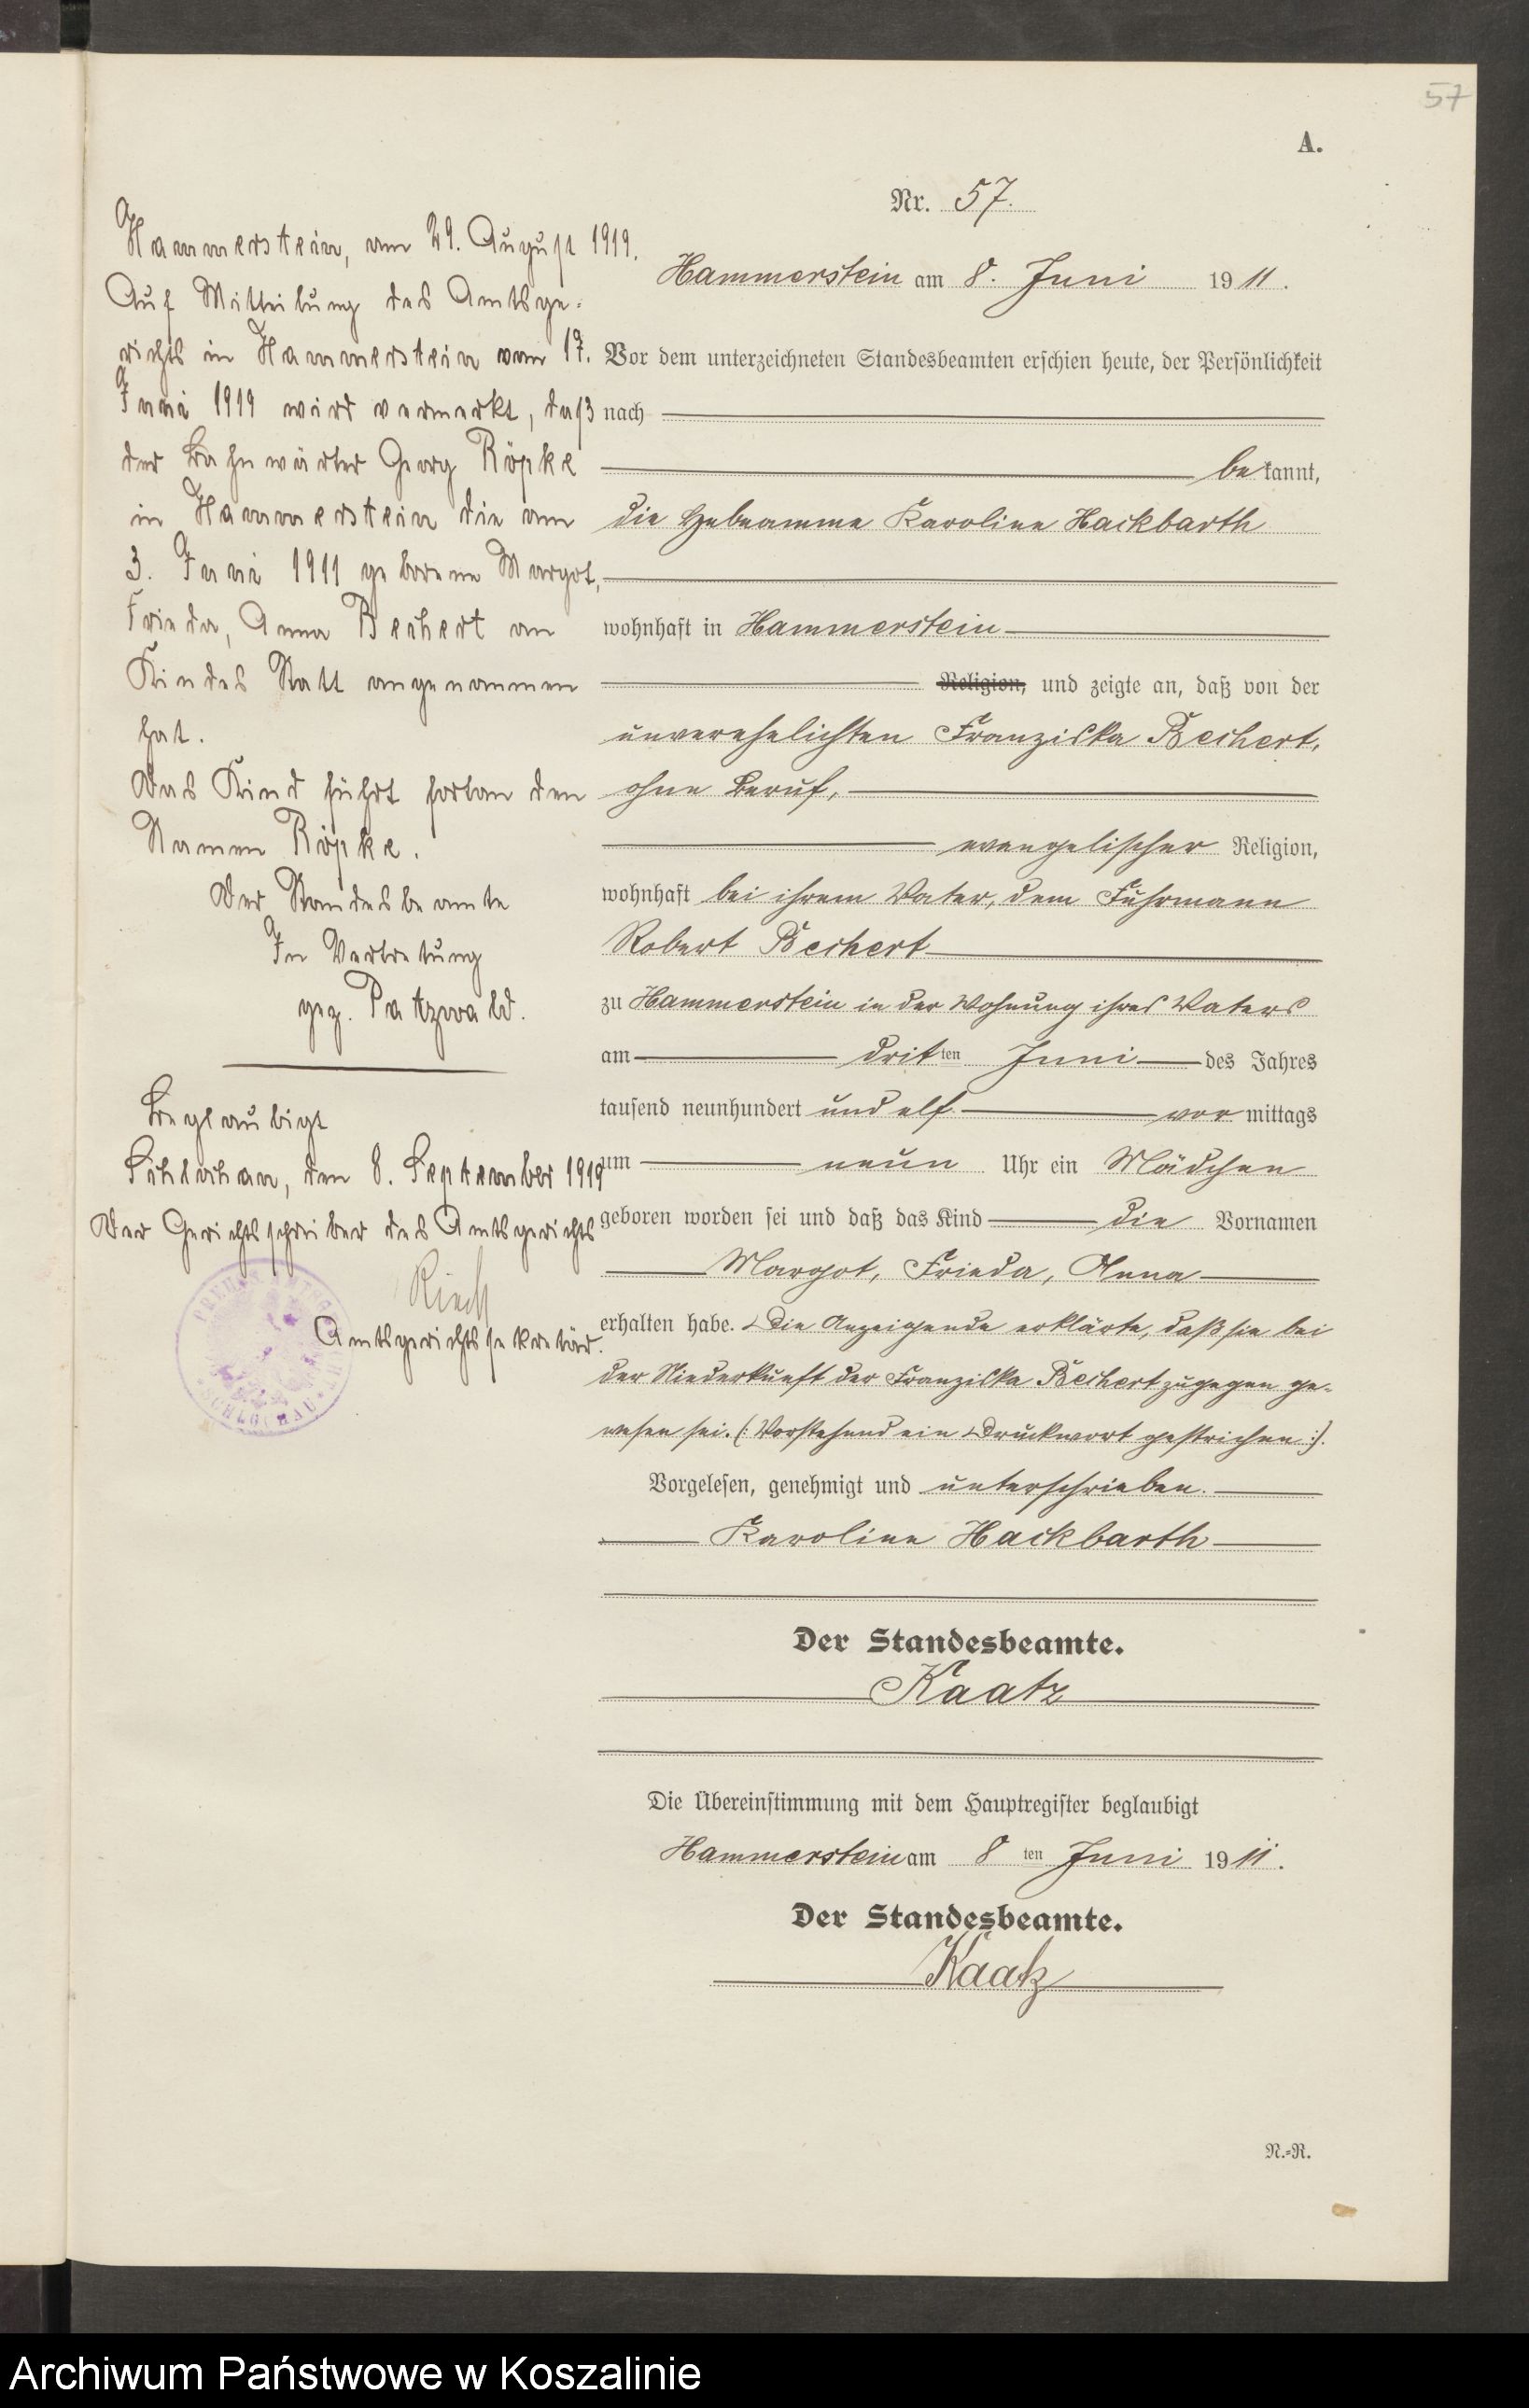 57
A.
Nr. 57.
Hammerstein am 8. Juni 1911.
Vor dem unterzeichneten Standesbeamten erschien heute, der Persönlichkeit
nach
bekannt,
die Hebeamme Karoline Hackbarth
wohnhaft in Hammerstein
Religion, und zeigte an, daß von der
unverehelichten Franziska Bechert,
ohne Beruf,
evangelischer Religion,
wohnhaft bei ihrem Vater, dem Fuhrmann
Robert Bechert
zu Hammerstein in der Wohnung ihres Vaters
am dritten Juni des Jahres
tausend neunhundert und elf vormittags
um neun Uhr ein Mädchen
geboren worden sei und daß das Kind die Vornamen
Margot, Frieda, Anna
erhalten habe. Die Anzeigende erklärte, daß sie bei
der Niederkunft der Franziska Bechert zugegen ge-
wesen sei. (: Vorstehend ein Druckwort gestrichen :).
Vorgelesen, genehmigt und unterschrieben.
Karoline Hackbarth
Der Standesbeamte.
Kaatz
Die Übereinstimmung mit dem Hauptregister beglaubigt
Hammerstein am 8ten Juni 1911.
Der Standesbeamte.
Kaatz
N.-R.
Hammerstein, am 29. August 1919.
Auf Mitteilung des Amtsge-
richts in Hammerstein vom 17.
Juni 1919 wird vermerkt, daß
der Bahnwärter Georg Röpke
in Hammerstein die am
3. Juni 1911 geborene Margot,
Frieda, Anna Bechert an
Kindes Statt angenommen
hat.
Das Kind führt fortan den
Namen Röpke.
Der Standesbeamte
In Vertretung
gez. Patzwald.
Beglaubigt
Schlochau, den 8. September 1919
Der Gerichtsschreiber des Amtsgerichts
Amtsgerichtssekretär.
SCHLOCHAU
Archiwum Państwowe w Koszalinie